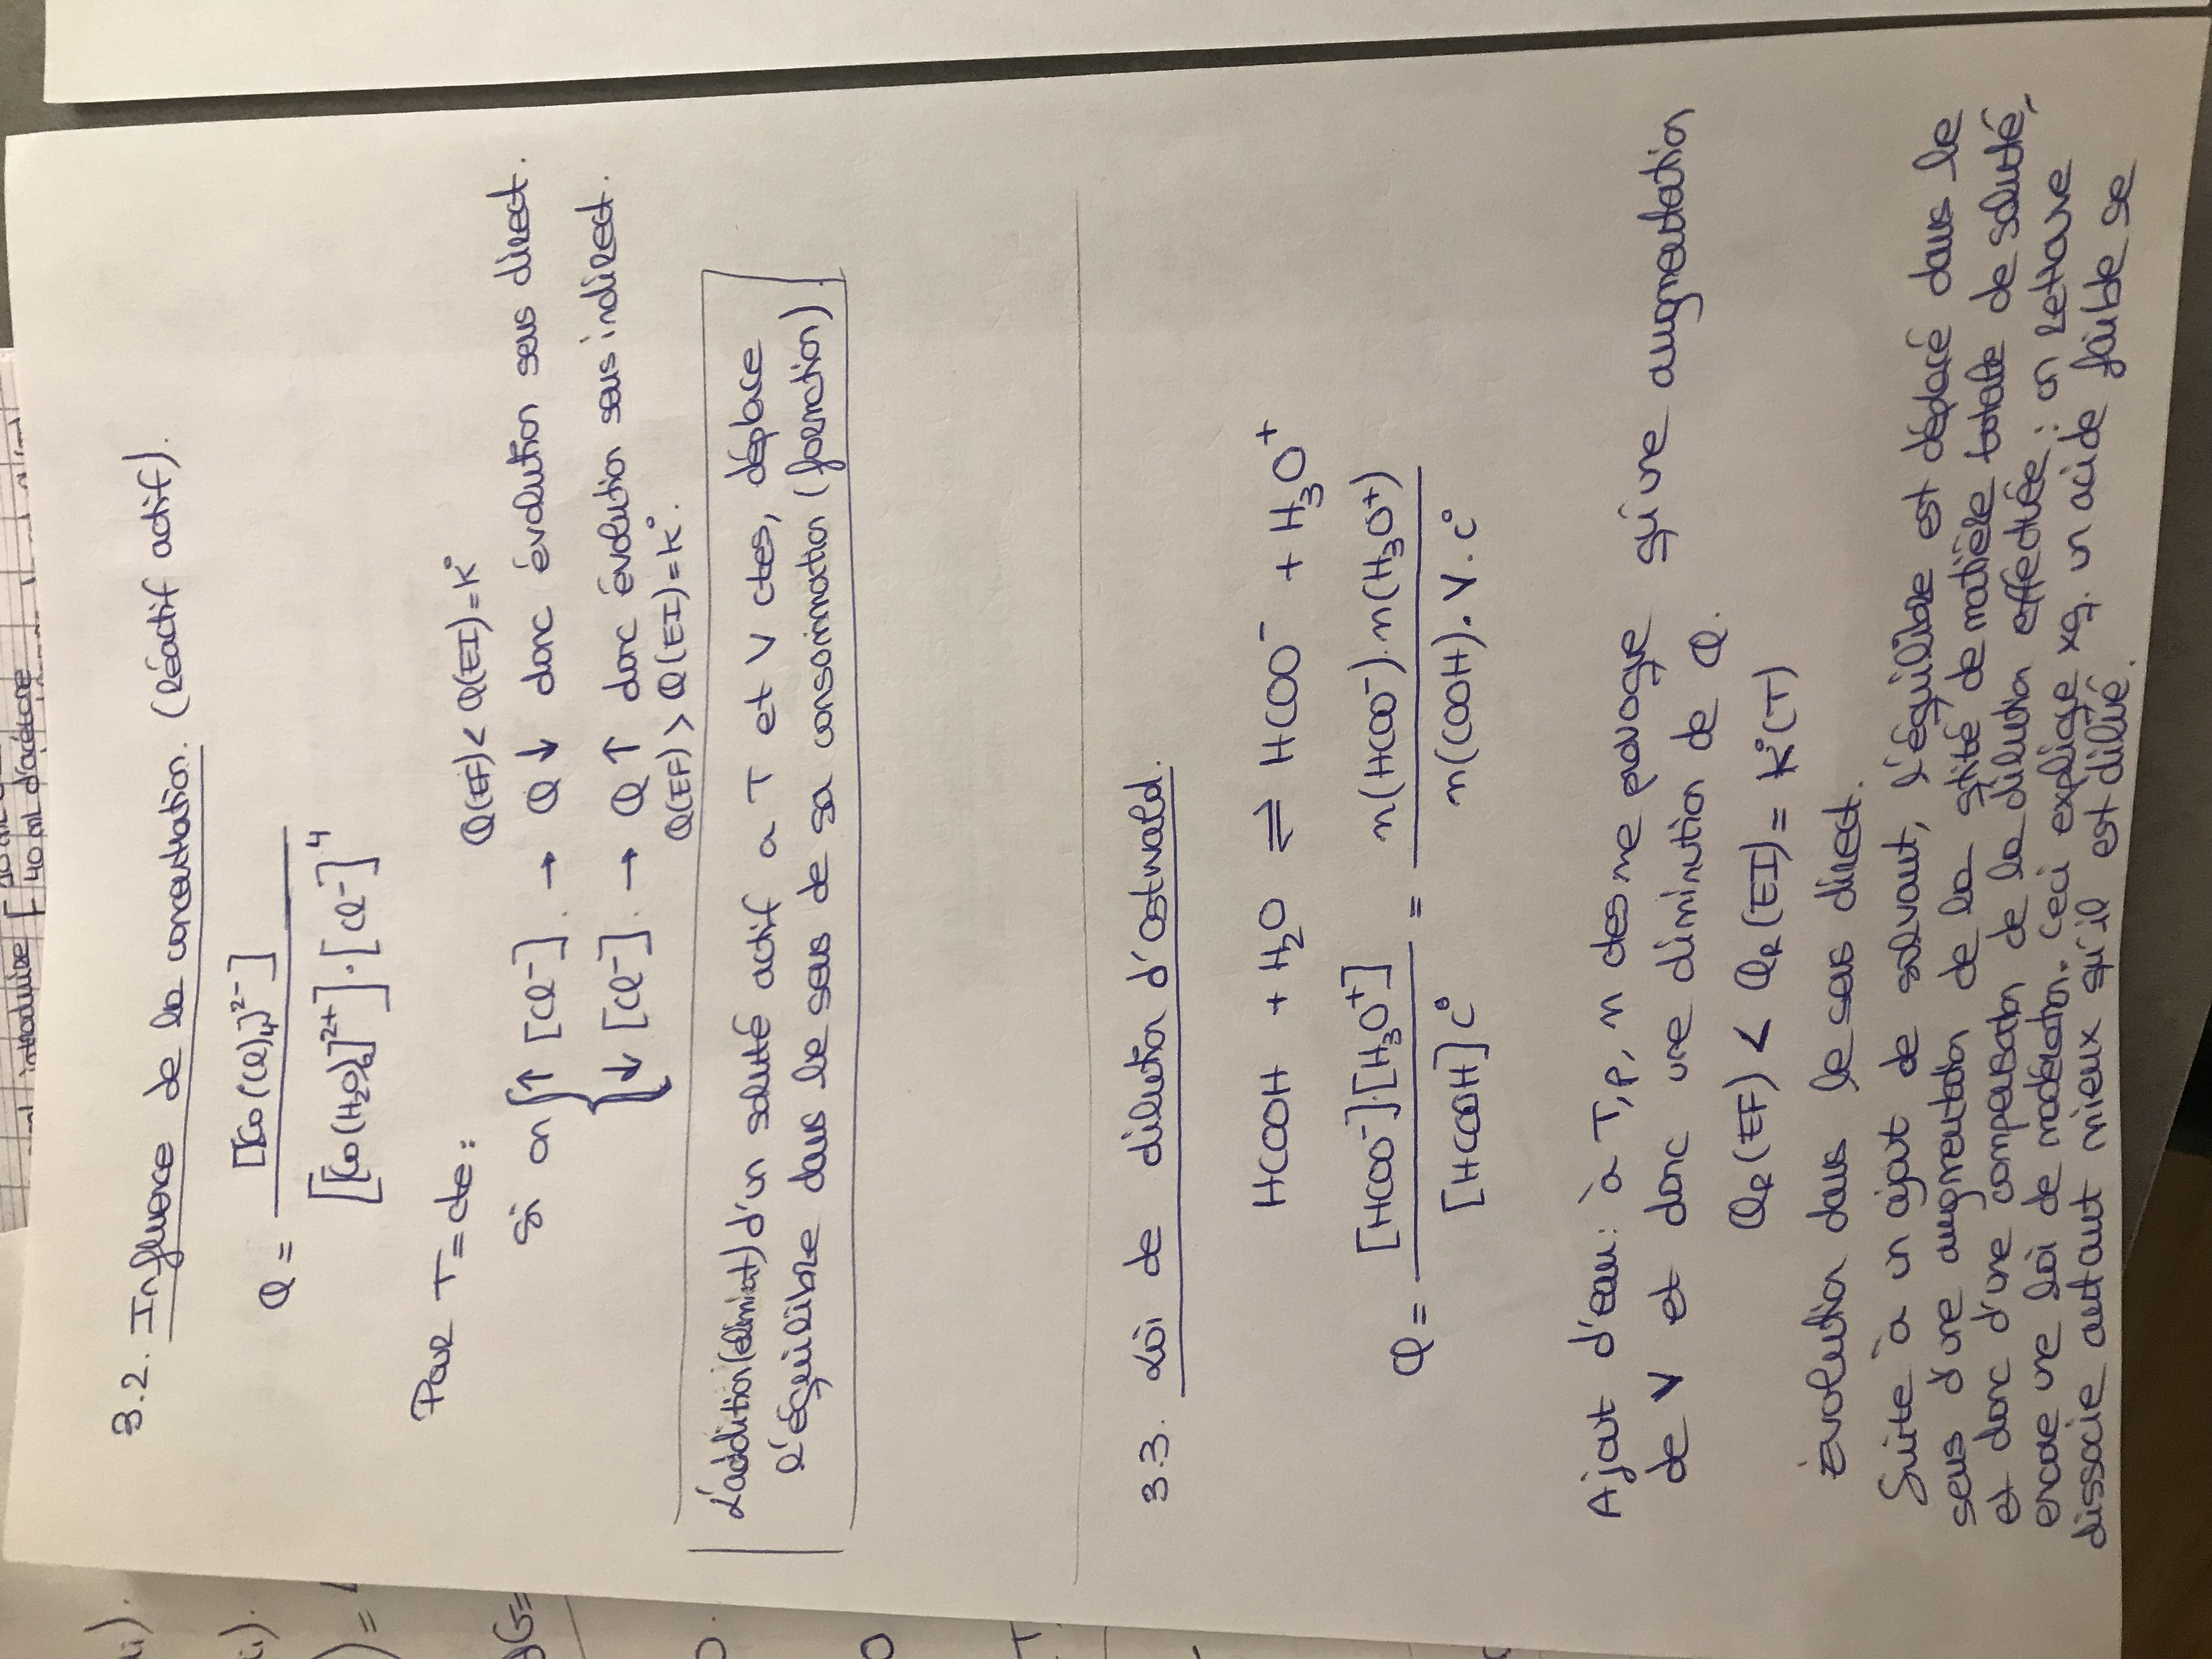 introduire [ 40 mL d'acétone
3.2. Influence de la concentration. (Réactif actif).
Q = [[Co(Cl)4]²⁻] / [[Co(H₂O)₆]²⁺]·[Cl⁻]⁴
Pour T = cte :
Q(EF) < Q(EI) = K°
si on { ↑ [Cl⁻]. → Q ↓ donc évolution sens direct.
↓ [Cl⁻]. → Q ↑ donc évolution sens indirect.
Q(EF) > Q(EI) = K°.
L'addition (éliminat) d'un soluté actif a T et V ctes, déplace
l'équilibre dans le sens de sa consommation (formation).
3.3. Loi de dilution d'Ostwald.
HCOOH + H₂O ⇌ HCOO⁻ + H₃O⁺
Q = [HCOO⁻]·[H₃O⁺] / [HCOOH] C° = n(HCOO⁻)·n(H₃O⁺) / n(COOH). V. C°
Ajout d'eau : à T, p, n ctes ne provoque qu'une augmentation
de V et donc une diminution de Q.
QR(EF) < QR(EI) = K°(T)
Évolution dans le sens direct.
Suite à un ajout de solvant, l'équilibre est déplacé dans le
sens d'une augmentation de la qtité de matière totale de soluté,
et donc d'une compensation de la dilution effectuée : on retrouve
encore une loi de modération. Ceci explique xq. un acide faible se
dissocie autant mieux qu'il est dilué.